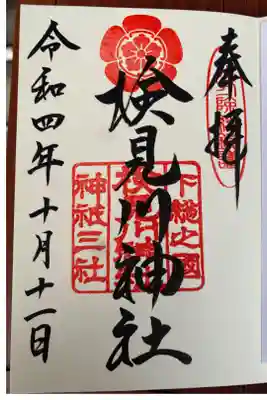 奉拝
検見川神社
下総之國
神祇三社
令和四年十月十一日